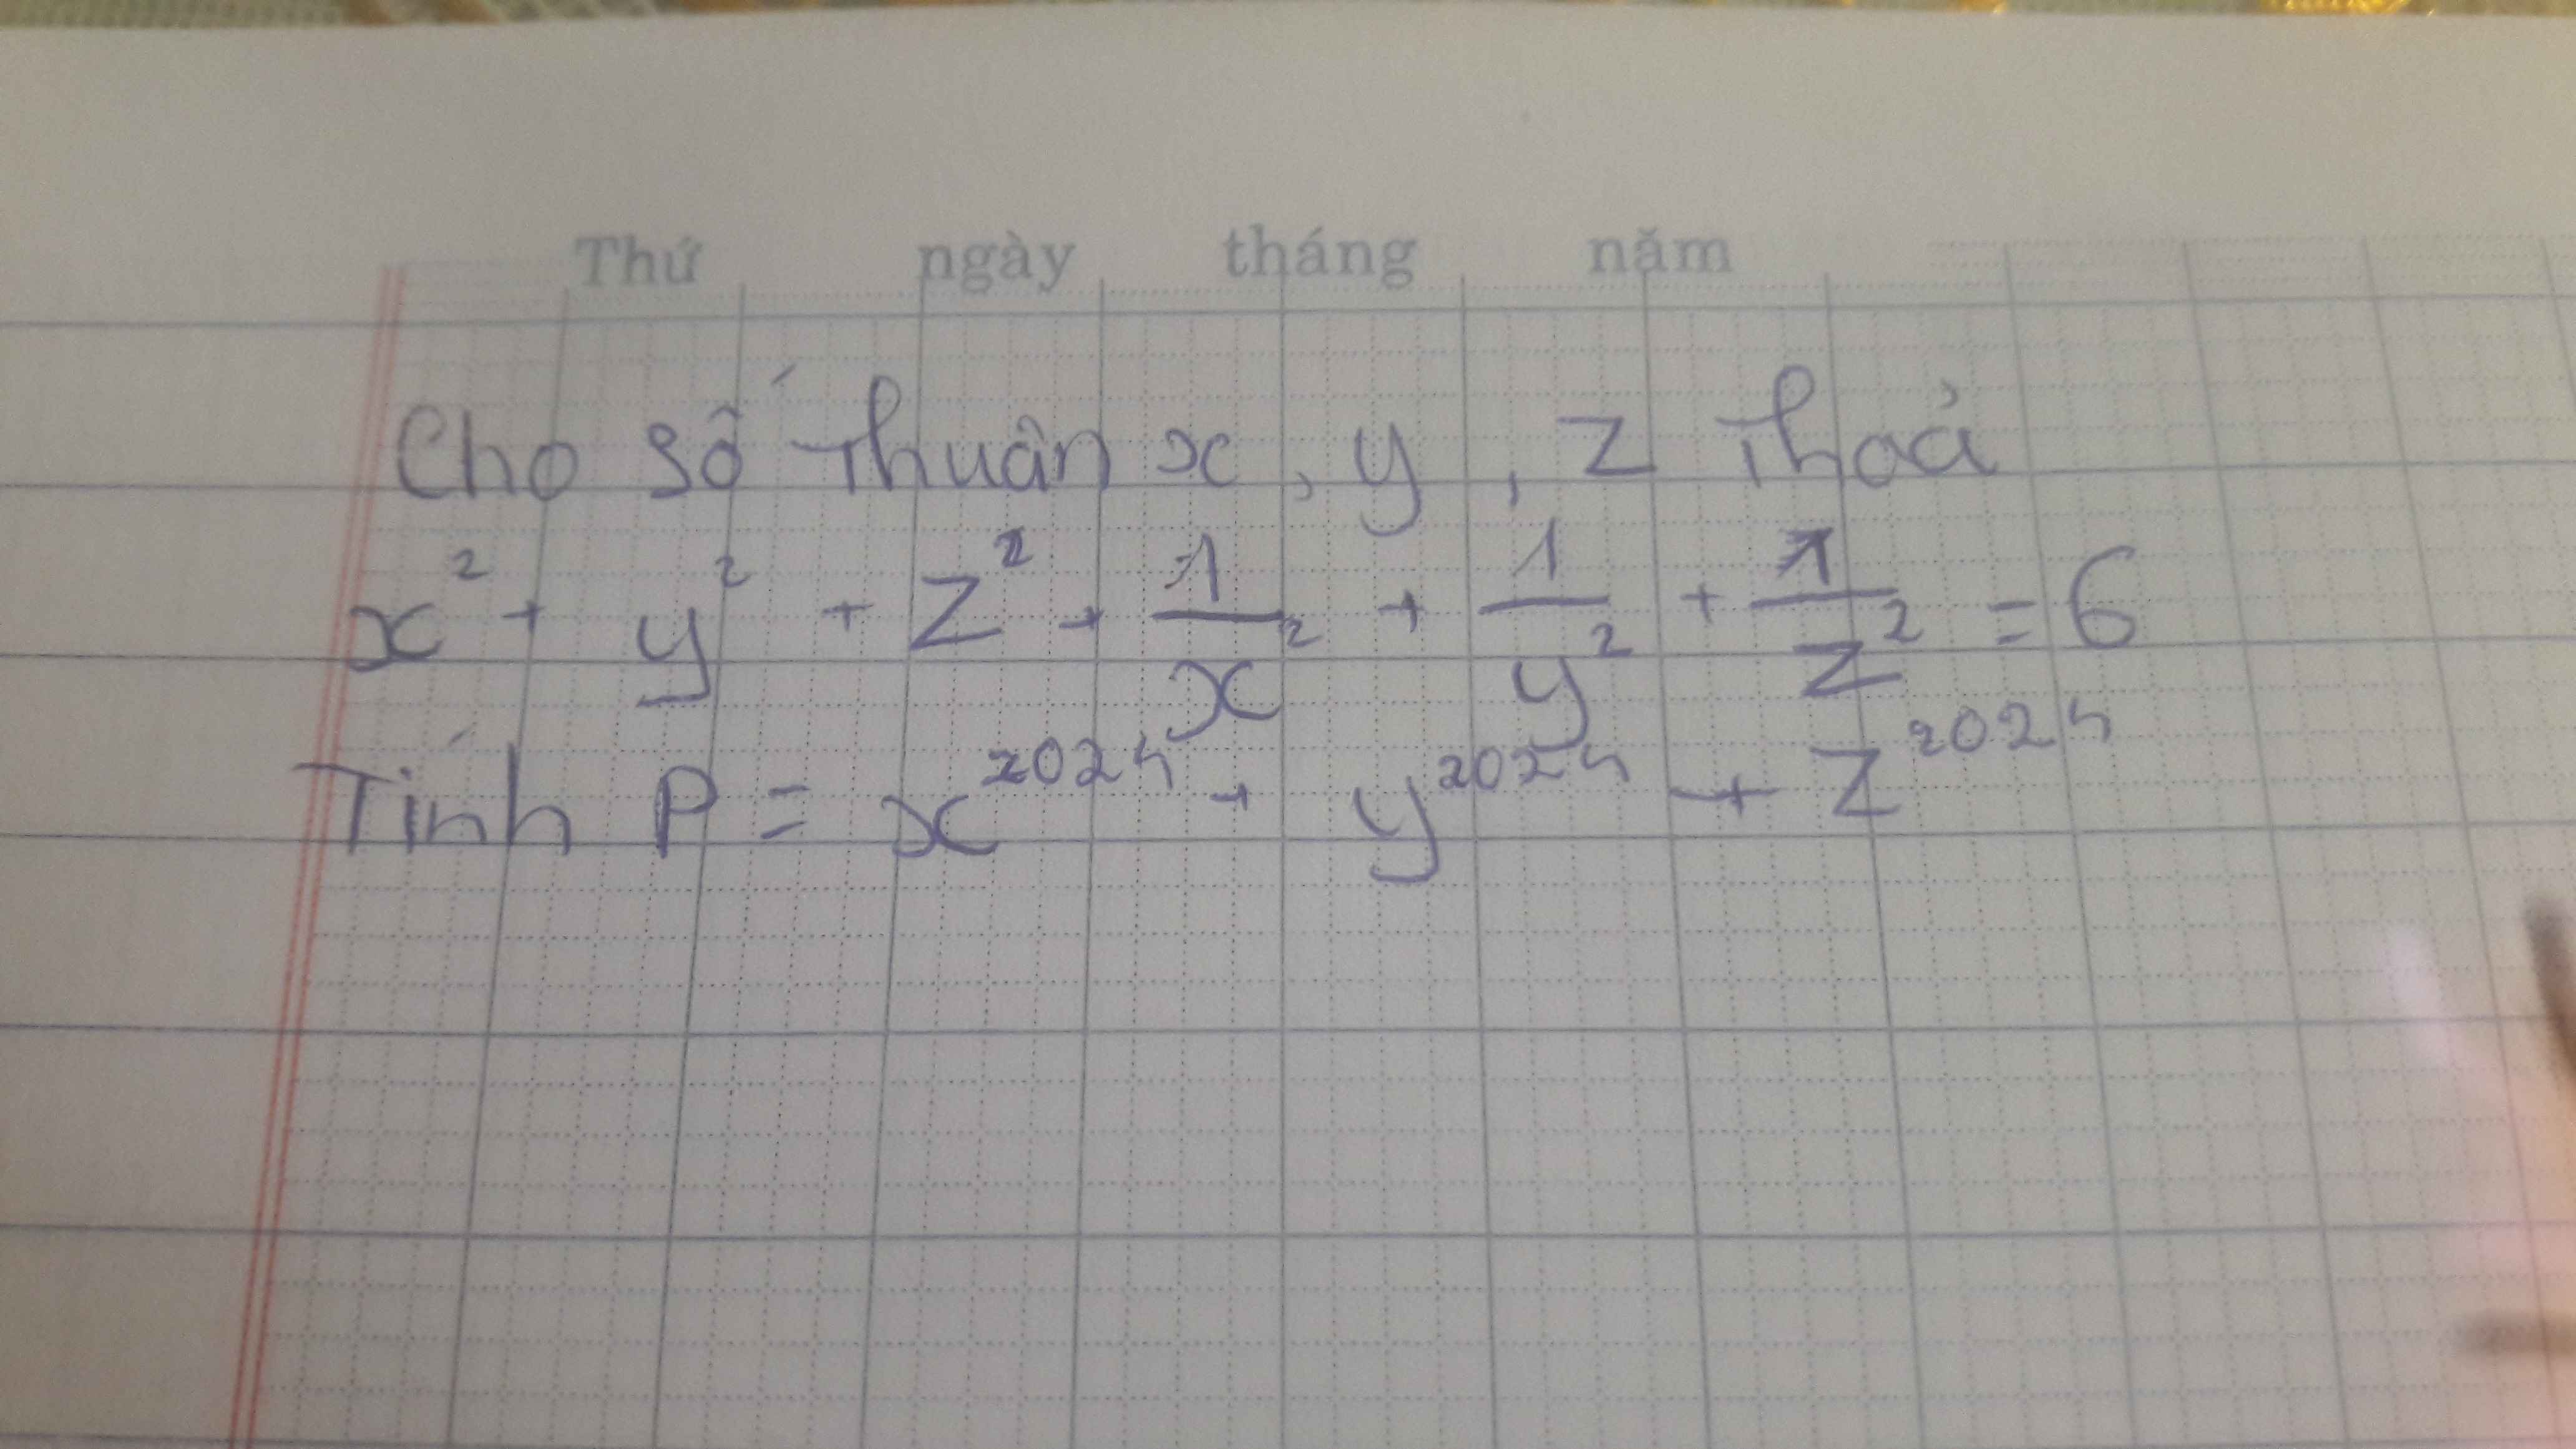 Thứ ngày tháng năm
Cho số thuân x, y, z thoả
x² + y² + z² + 1/x² + 1/y² + 1/z² = 6
Tính P = x²⁰²⁴ + y²⁰²⁴ + z²⁰²⁴